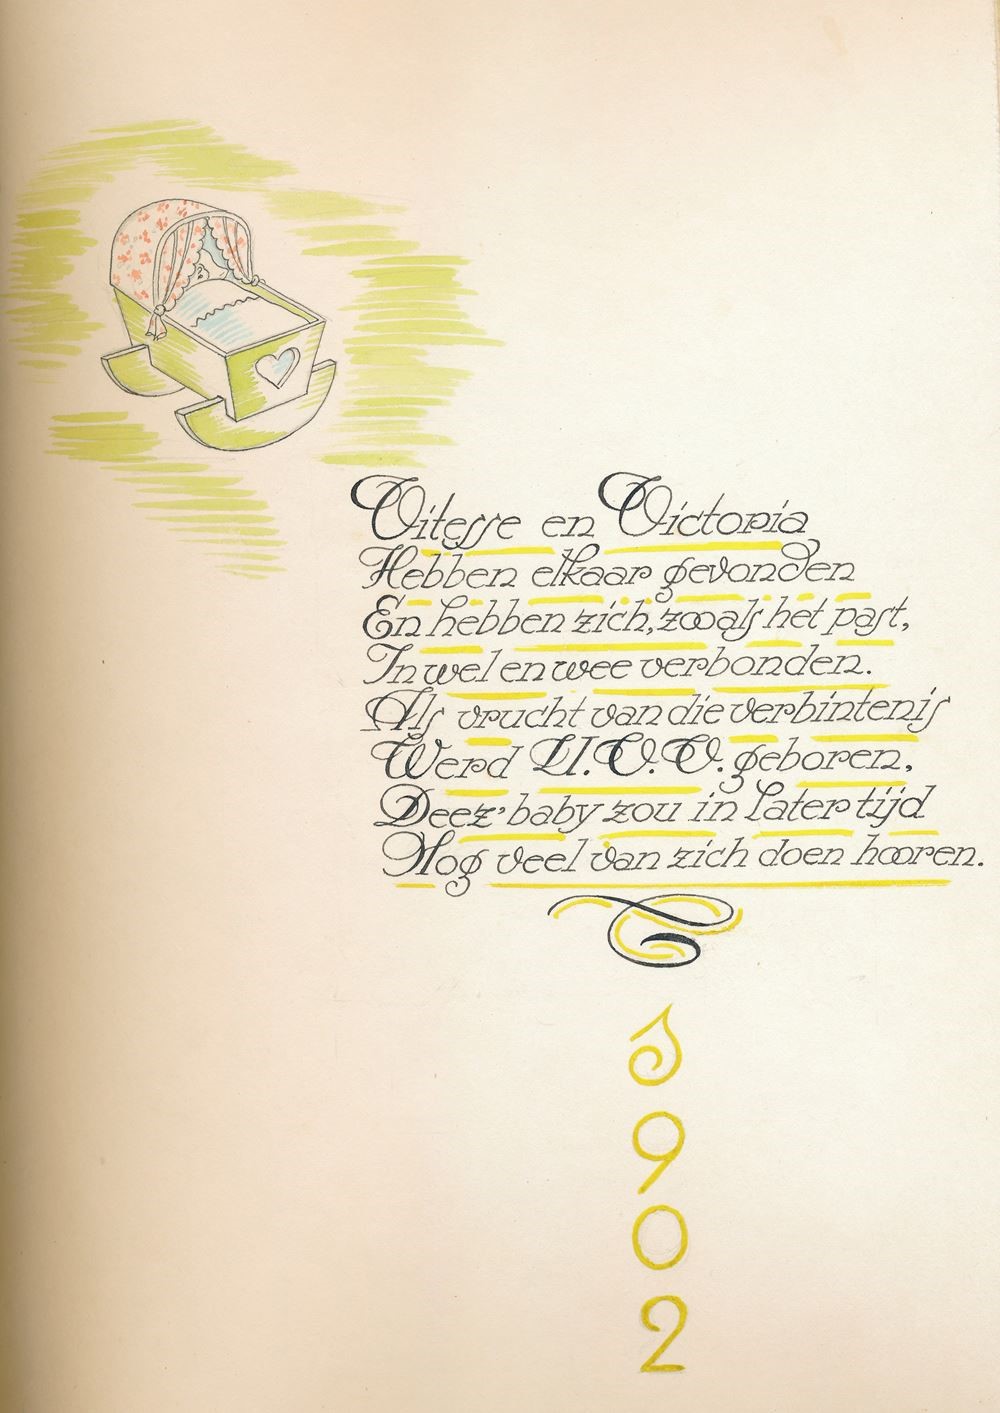 Vitesse en Victoria
Hebben elkaar gevonden
En hebben zich, zooals het past,
In wel en wee verbonden.
Als vrucht van die verbintenis
Werd U.V.V. geboren,
Deez' baby zou in later tijd
Nog veel van zich doen hooren.
1902